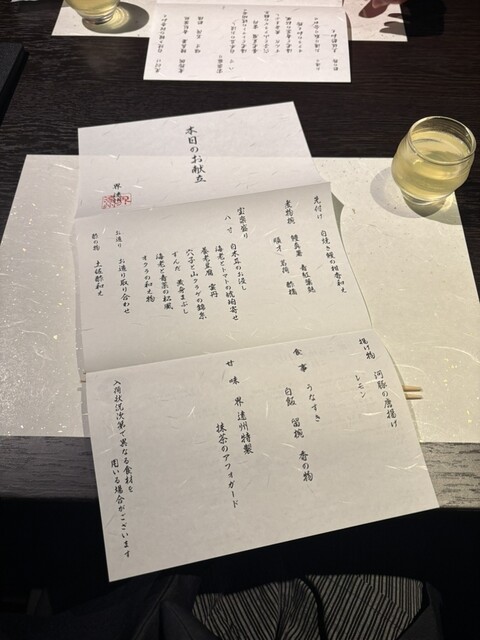 本日のお献立
界 遠州
先付け 白焼き鰻の柑香和え
煮物椀 鰻真薯 青紅葉麩
順才 茗荷 酢橘
宝楽盛り
八寸 白木耳のお浸し
海老とトマトの琥珀寄せ
養老豆腐 雲丹
穴子と山クラゲの錦糸
ずんだ 黄身まぶし
海老と青菜の松風
オクラの和え物
お造り お造り取り合わせ
酢の物 土佐酢和え
揚げ物 河豚の唐揚げ
レモン
食事 うなすき
白飯 留椀 香の物
甘味 界 遠州特製
抹茶のアフォガード
入荷状況次第で異なる食材を
用いる場合がございます